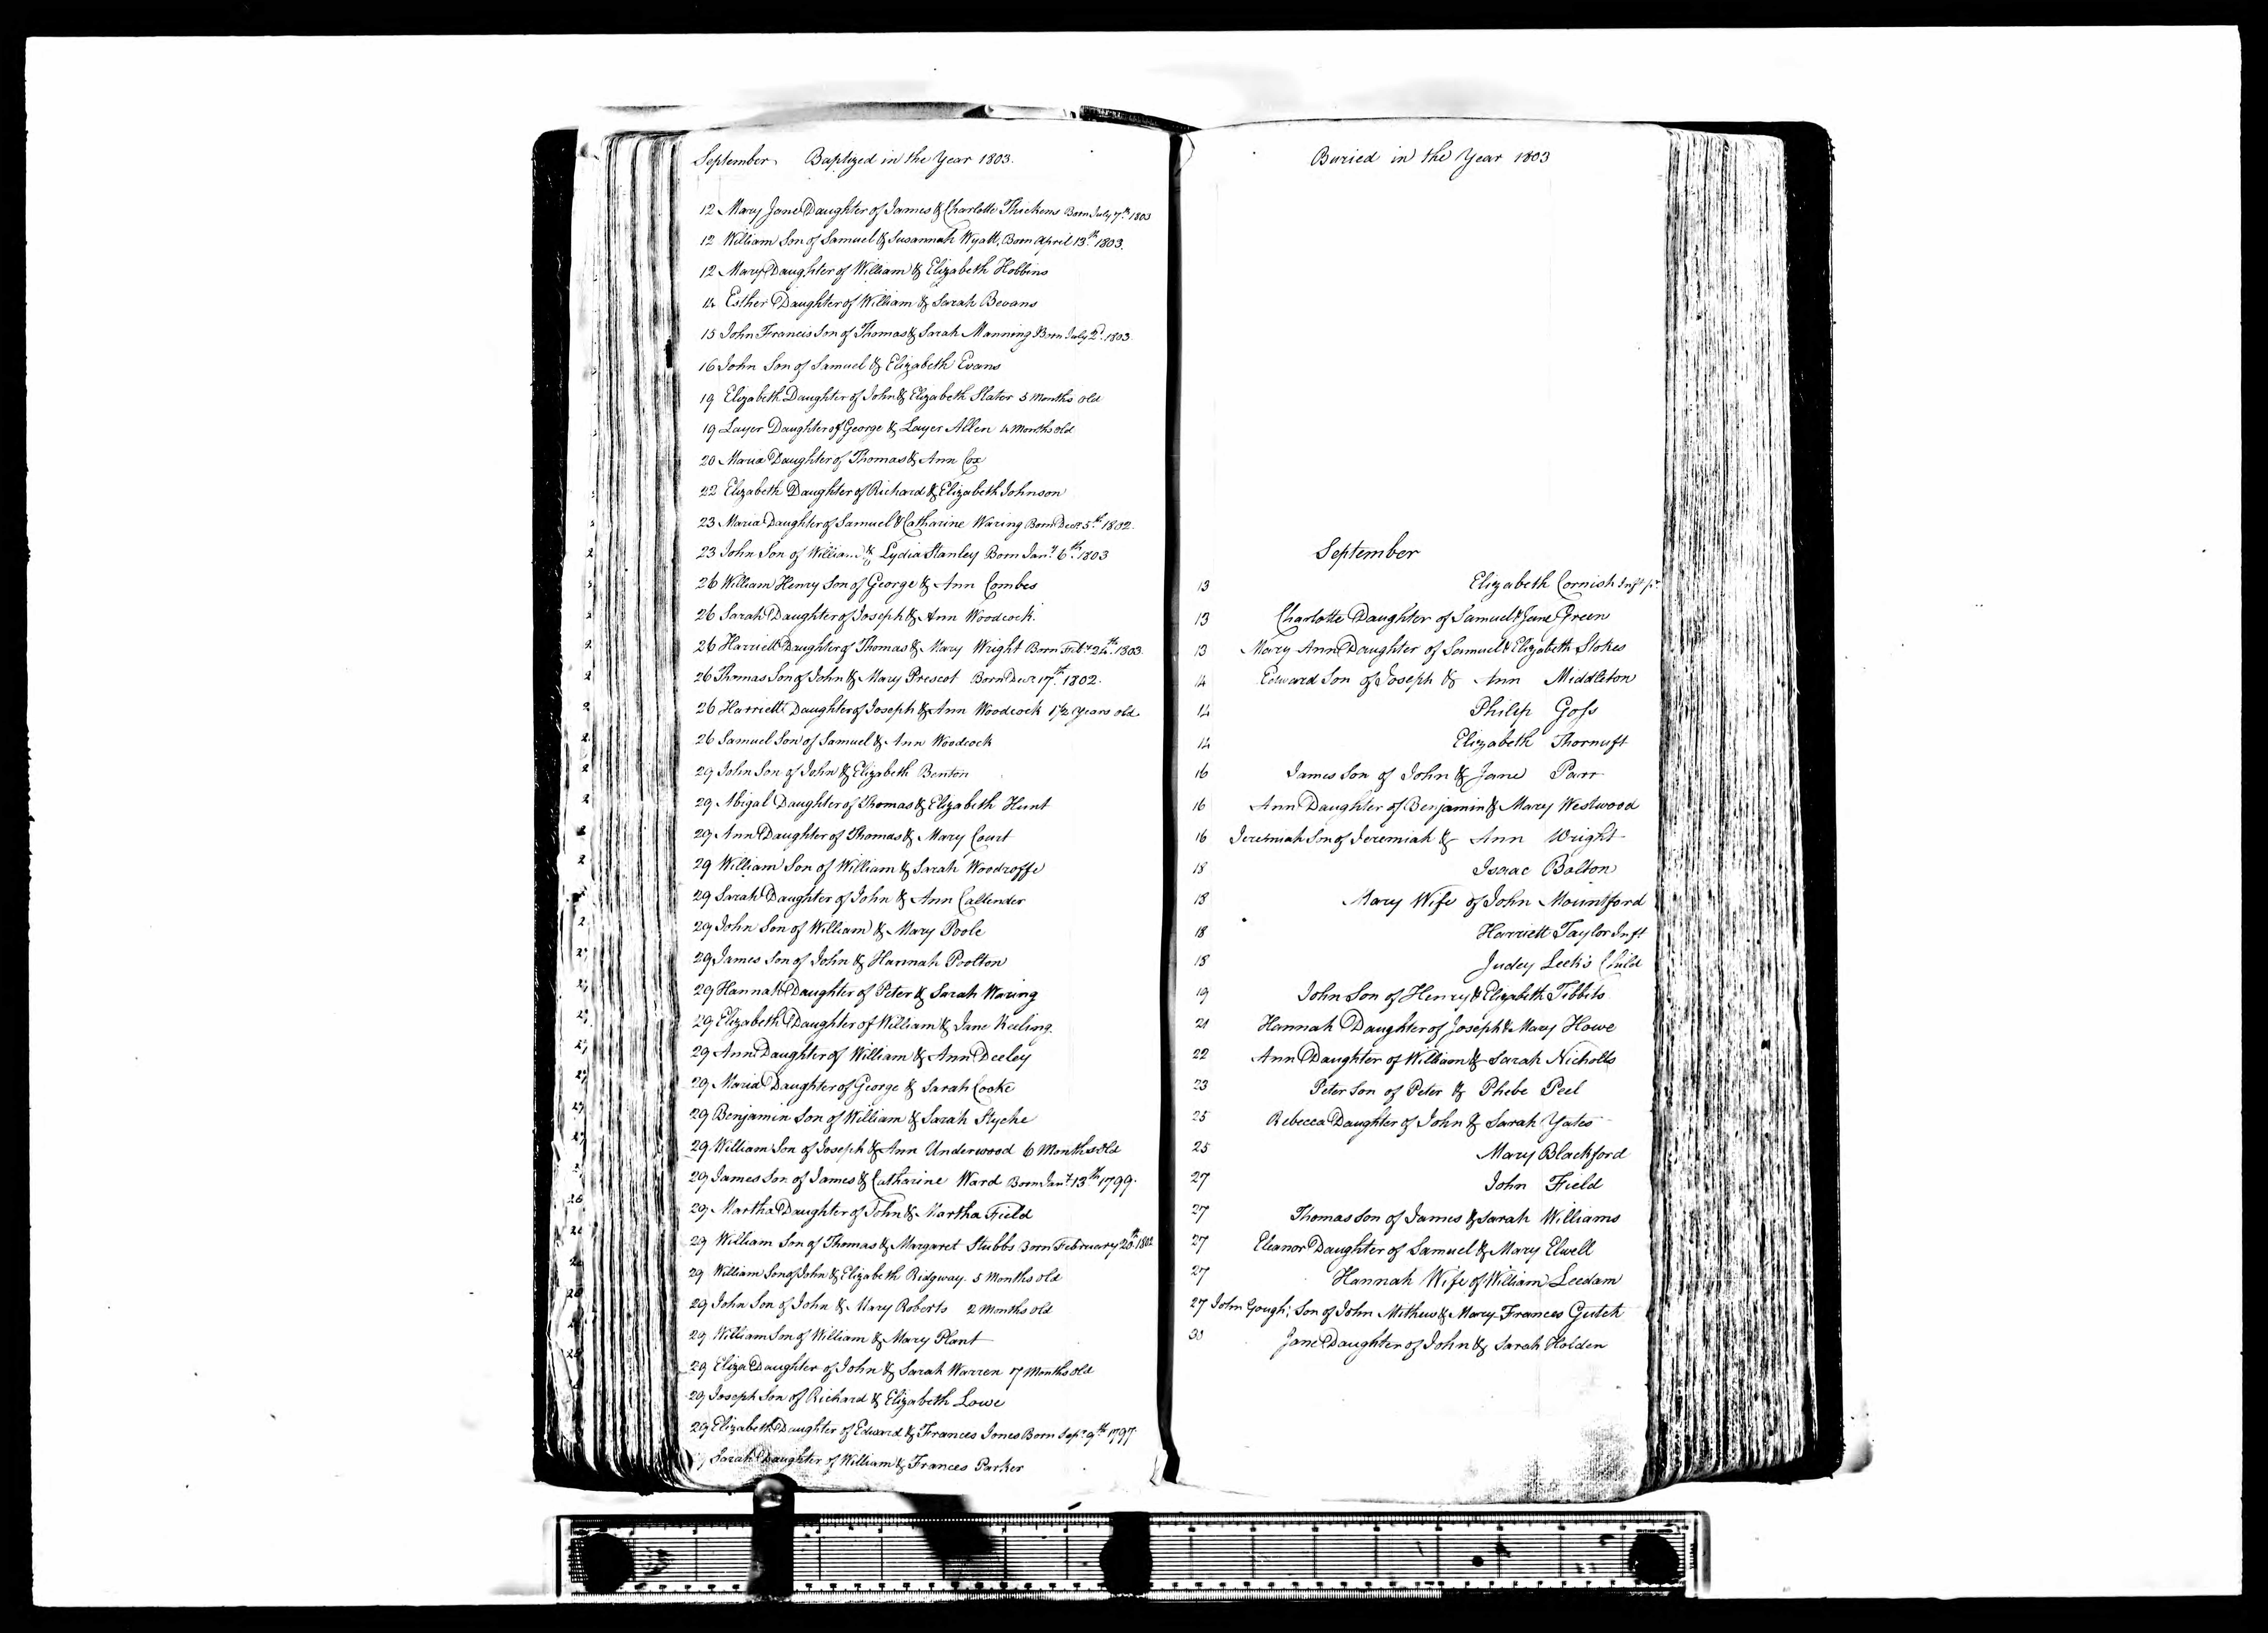 September Baptized in the Year 1803.
12 Mary Jane Daughter of James & Charlotte Thickens Born July 7th. 1803
12 William Son of Samuel & Susannah Wyatt, Born April 13th. 1803.
12 Mary Daughter of William & Elizabeth Hobbins
14 Esther Daughter of William & Sarah Bevans
15 John Francis Son of Thomas & Sarah Manning Born July 2d. 1803.
16 John Son of Samuel & Elizabeth Evans
19 Elizabeth Daughter of John & Elizabeth Slater 5 Months old
19 Layer Daughter of George & Layer Allen 4 Months old
20 Maria Daughter of Thomas & Ann Cox
22 Elizabeth Daughter of Richard & Elizabeth Johnson
23 Maria Daughter of Samuel & Catharine Waring Born Decr. 5th. 1802.
23 John Son of William & Lydia Stanley Born Jany. 6th. 1803
26 William Henry Son of George & Ann Combes
26 Sarah Daughter of Joseph & Ann Woodcock.
26 Harriett Daughter of Thomas & Mary Wright Born Feby. 24th. 1803.
26 Thomas Son of John & Mary Prescot Born Decr. 17th. 1802.
26 Harriett Daughter of Joseph & Ann Woodcock 1½ Years old
26 Samuel Son of Samuel & Ann Woodcock
29 John Son of John & Elizabeth Benton
29 Abigal Daughter of Thomas & Elizabeth Hunt
29 Ann Daughter of Thomas & Mary Court
29 William Son of William & Sarah Woodroffe
29 Sarah Daughter of John & Ann Callender
29 John Son of William & Mary Poole
29 James Son of John & Hannah Poolton
29 Hannah Daughter of Peter & Sarah Waring
29 Elizabeth Daughter of William & Jane Keeling.
29 Ann Daughter of William & Ann Deeley
29 Maria Daughter of George & Sarah Cooke
29 Benjamin Son of William & Sarah Styche
29 William Son of Joseph & Ann Underwood 6 Months old
29 James Son of James & Catharine Ward Born Jany. 13th 1799.
29 Martha Daughter of John & Martha Field
29 William Son of Thomas & Margaret Stubbs Born February 20th. 1802
29 William Son of John & Elizabeth Ridgway. 5 Months old
29 John Son of John & Mary Roberts 2 Months old
29 William Son of William & Mary Plant
29 Eliza Daughter of John & Sarah Warren 7 Months old
29 Joseph Son of Richard & Elizabeth Lowe
29 Elizabeth Daughter of Edward & Frances Jones Born Sepr. 9th 1797.
Sarah Daughter of William & Frances Parker
Buried in the Year 1803
September
13 Elizabeth Cornish Inft
13 Charlotte Daughter of Samuel & Jane Green
13 Mary Ann Daughter of Samuel & Elizabeth Stokes
14 Edward Son of Joseph & Ann Middleton
14 Philip Goss
14 Elizabeth
16 James Son of John & Jane Parr
16 Ann Daughter of Benjamin & Mary Westwood
16 Jeremiah Son of Jeremiah & Ann Wright
18 Isaac Bolton
18 Mary Wife of John Mountford
18 Harriett Taylor Inft
18 Judey Leek's Child
19 John Son of Henry & Elizabeth Tibbits
21 Hannah Daughter of Joseph & Mary Howe
22 Ann Daughter of William & Sarah Nicholls
23 Peter Son of Peter & Phebe Peel
25 Rebecca Daughter of John & Sarah Yates
25 Mary Blackford
27 John Field
27 Thomas Son of James & Sarah Williams
27 Eleanor Daughter of Samuel & Mary Elwell
27 Hannah Wife of William Leedam
27 John Gough; Son of John Mathew & Mary Frances Gutch
30 Jane Daughter of John & Sarah Holden